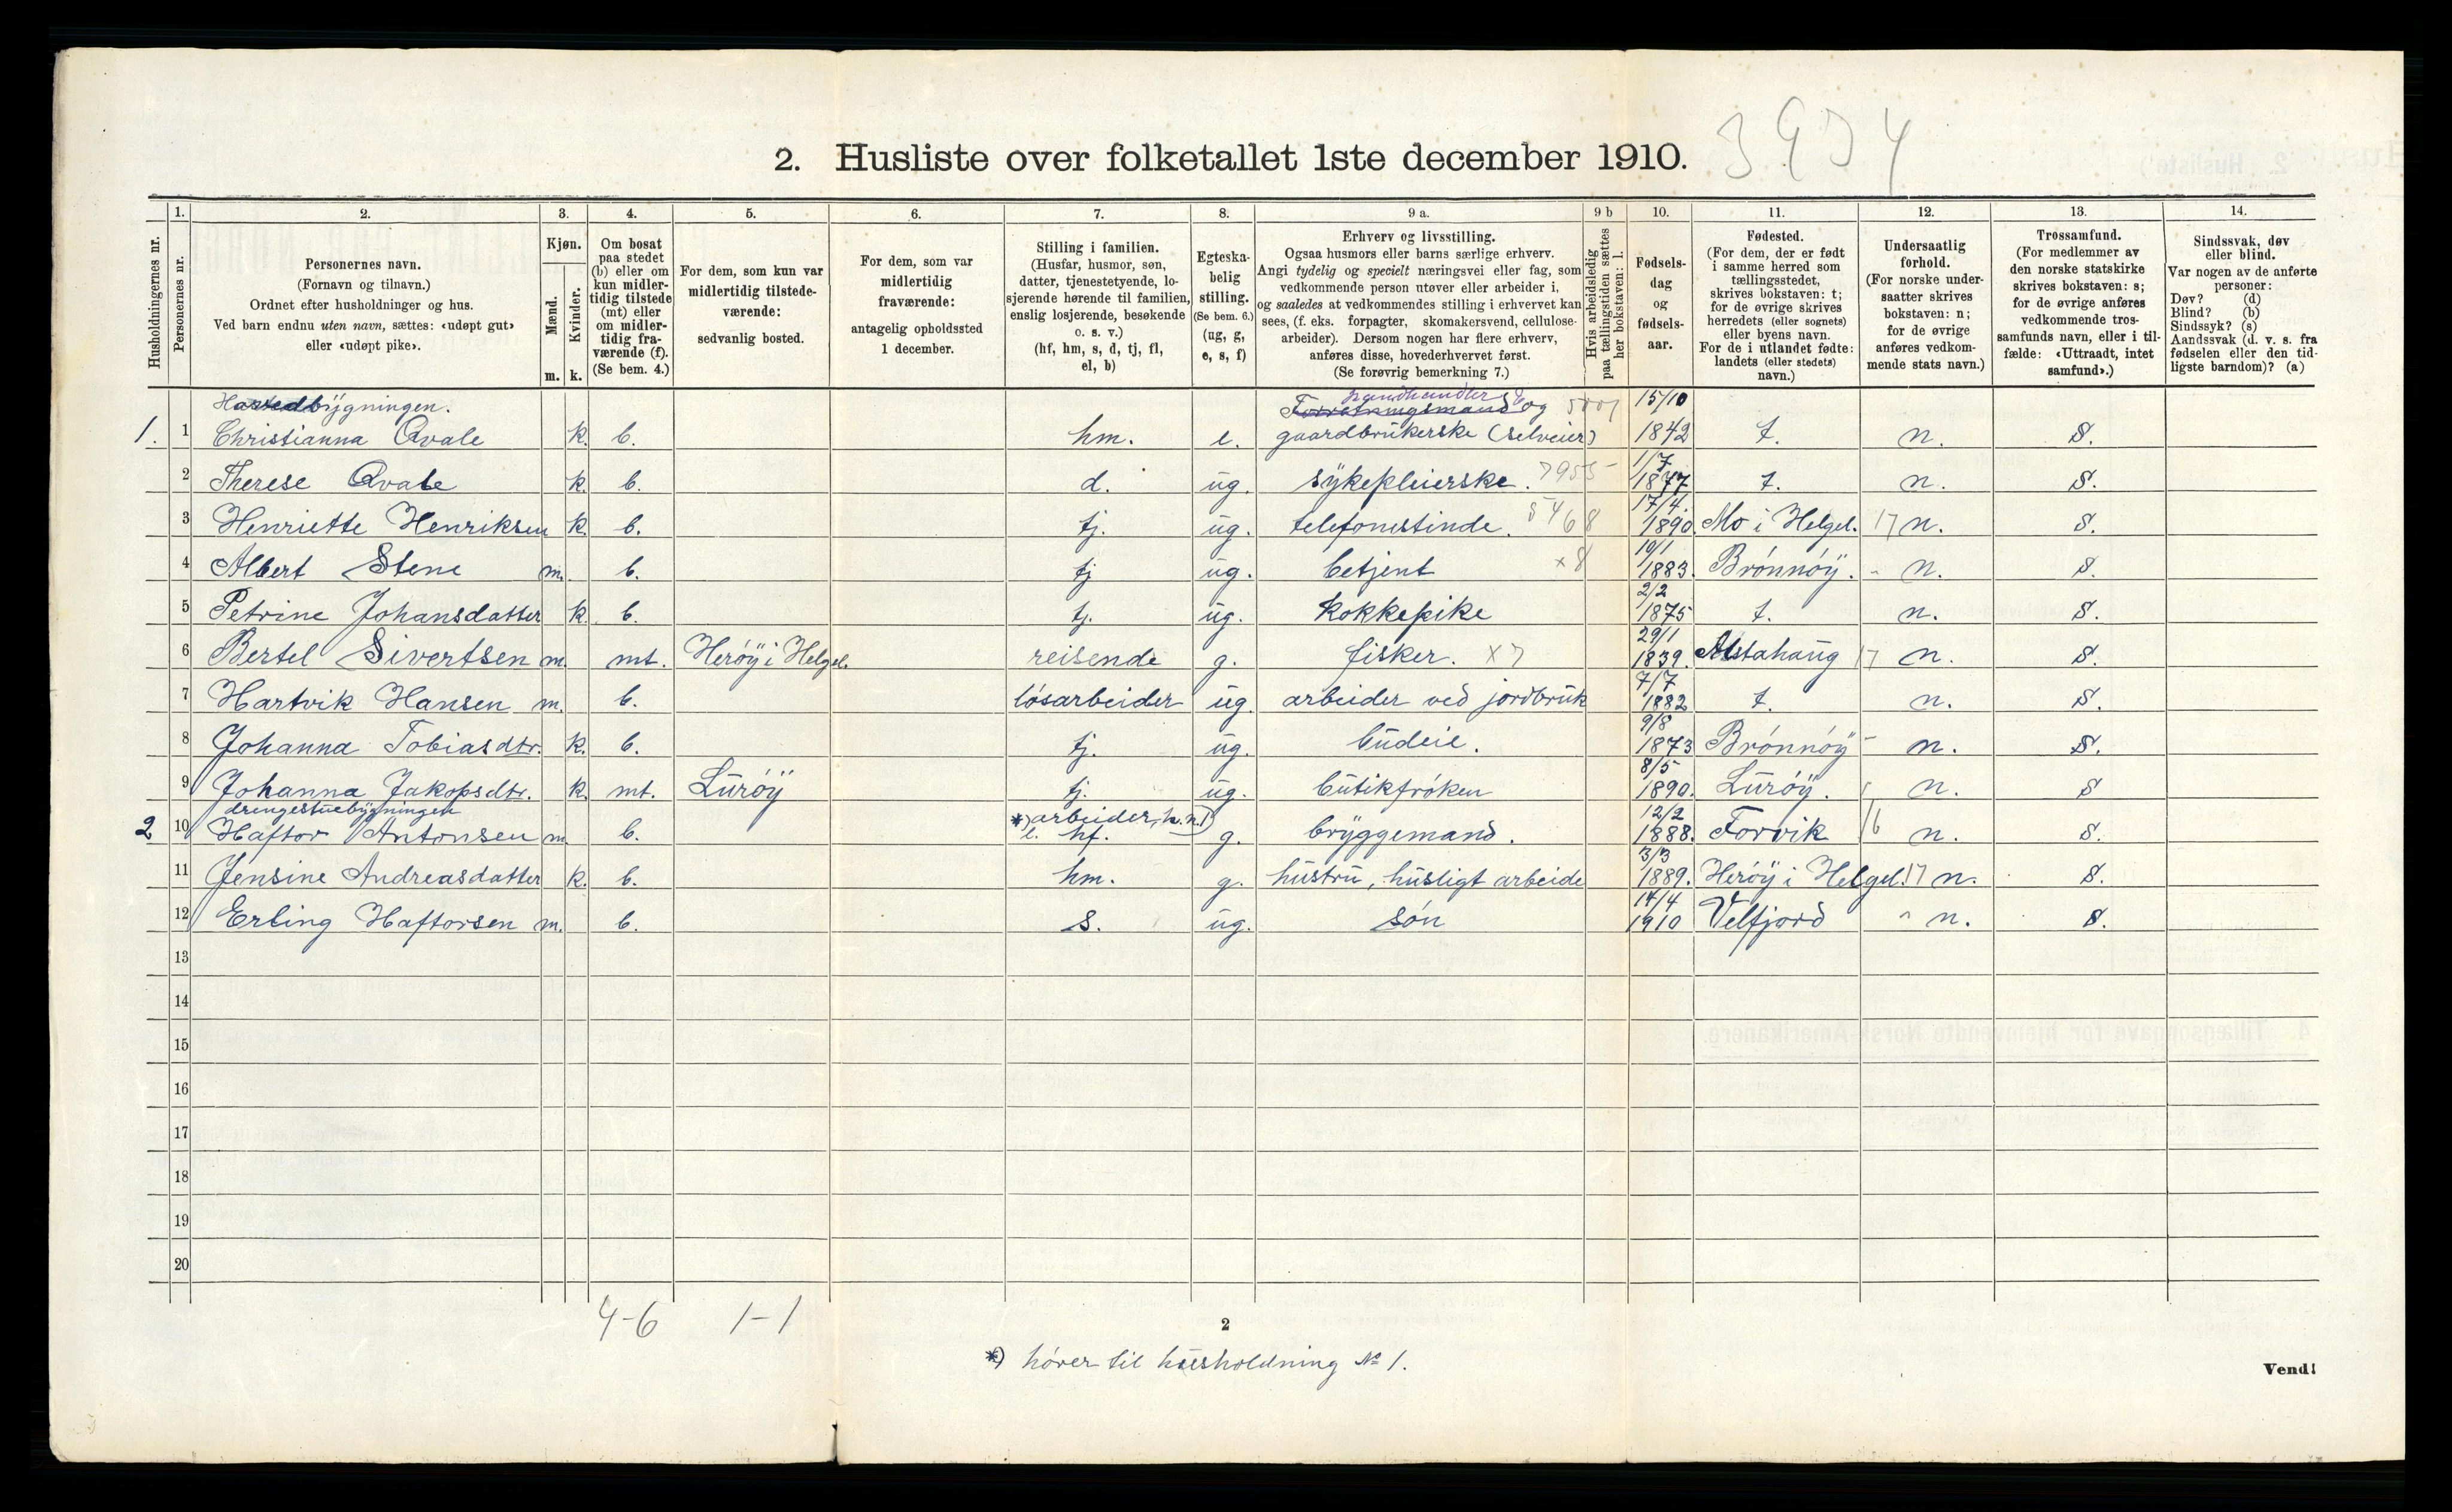 3934
2. Husliste over folketallet 1ste december 1910.
Husholdningernes nr.
1.
Personernes nr.
2.
Personernes navn.
(Fornavn og tilnavn.)
Ordnet efter husholdninger og hus.
Ved barn endnu uten navn, sættes: «udøpt gut»
eller «udøpt pike».
3.
Kjøn.
Mænd.
Kvinder.
m. k.
4.
Om bosat
paa stedet
(b) eller om
kun midler-
tidig tilstede
(mt) eller
om midler-
tidig fra-
værende (f).
(Se bem. 4.)
5.
For dem, som kun var
midlertidig tilstede-
værende:
sedvanlig bosted.
6.
For dem, som var
midlertidig
fraværende:
antagelig opholdssted
1 december.
7.
Stilling i familien.
(Husfar, husmor, søn,
datter, tjenestetyende, lo-
sjerende hørende til familien,
enslig losjerende, besøkende
o. s. v.)
(hf, hm, s, d, tj, fl,
el, b)
8.
Egteska-
belig
stilling.
(Se bem. 6.)
(ug, g,
e, s, f)
9 a.
Erhverv og livsstilling.
Ogsaa husmors eller barns særlige erhverv.
Angi tydelig og specielt næringsvei eller fag, som
vedkommende person utøver eller arbeider i,
og saaledes at vedkommendes stilling i erhvervet kan
sees, (f. eks. forpagter, skomakersvend, cellulose-
arbeider). Dersom nogen har flere erhverv,
anføres disse, hovederhvervet først.
(Se forøvrig bemerkning 7.)
9 b
Hvis arbeidsledig
paa tællingstiden sættes
her bokstaven: l.
10.
Fødsels-
dag
og
fødsels-
aar.
11.
Fødested.
(For dem, der er født
i samme herred som
tællingsstedet,
skrives bokstaven: t;
for de øvrige skrives
herredets (eller sognets)
eller byens navn.
For de i utlandet fødte:
landets (eller stedets)
navn.)
12.
Undersaatlig
forhold.
(For norske under-
saatter skrives
bokstaven: n;
for de øvrige
anføres vedkom-
mende stats navn.)
13.
Trossamfund.
(For medlemmer av
den norske statskirke
skrives bokstaven: s;
for de øvrige anføres
vedkommende tros-
samfunds navn, eller i til-
fælde: «Uttraadt, intet
samfund».)
14.
Sindssvak, døv
eller blind.
Var nogen av de anførte
personer:
Døv? (d)
Blind? (b)
Sindssyk? (s)
Aandssvak (d. v. s. fra
fødselen eller den tid-
ligste barndom)? (a)
Hovedbygningen. landhandler Forretningsmand og 15/10
1. 1 Christianna Qvale k. b. hm. e. gaardbrukerske (selveier) 1842 t. n. s.
1/7
2 Therese Qvale k. b. d. ug. sykepleierske. 7955 1877 t. n. s.
17/4.
3 Henriette Henriksen k. b. tj. ug. telefonistinde. 5468 1890 Mo i Helgel. 17 n. s.
19/1
4 Albert Stene m. b. tj ug. betjent x8 1883. Brønnøy. - n. s.
2/2
5 Petrine Johansdatter k. b. tj. ug. kokkepike 1875 t. n. s.
29/1
6 Bertel Sivertsen m. mt. Herøy i Helgel. reisende g. fisker. x7 1839. Alstahaug 17 n. s.
7/7
7 Hartvik Hansen m. b. løsarbeider ug. arbeider ved jordbruk 1882 t. n. s.
9/8
8 Johanna Tobiasdtr. k. b. tj. ug. budeie. 1873 Brønnøy - n. s.
8/5
9 Johanna Jakopsdtr. k. mt. Lurøy tj. ug. butikfrøken 1890. Lurøy. n. s
drengestuebygningen *) arbeider, h. n. 1) 12/2
2 10 Haftor Antonsen m. b. l. hf. g. bryggemand. 1888. Forvik 16 n. s.
3/3
11 Jensine Andreasdatter k. b. hm. g. hustru, husligt arbeide 1889. Herøy i Helgel. 17 n. s.
14/4
12 Erling Haftorsen m. b. s. ug. søn 1910 Velfjord " n. s.
13
14
15
16
17
18
19
20
4-6 1-1
2
*) hører til husholdning № 1.
Vend!